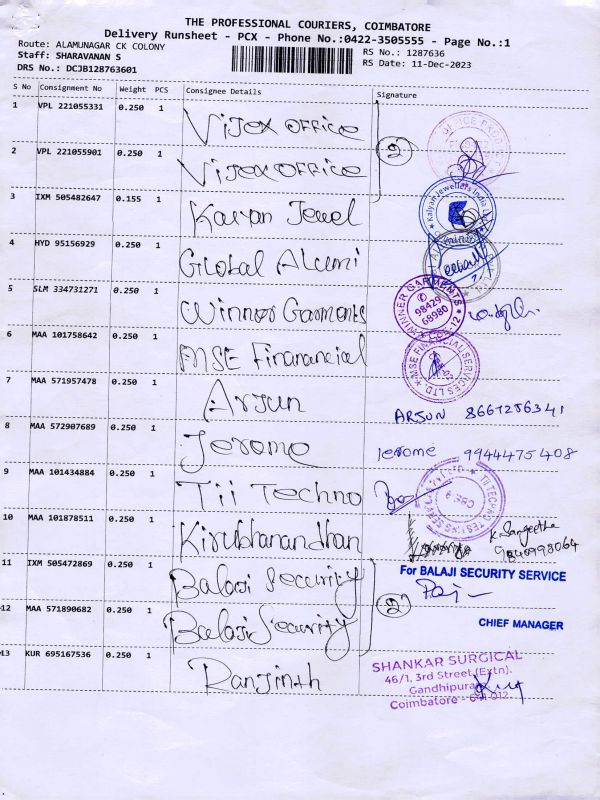 THE PROFESSIONAL COURIERS, COIMBATORE
Delivery Runsheet - PCX - Phone No.:0422-3505555 - Page No.:1
Route: ALAMUNAGAR CK COLONY
RS No.: 1287636
Staff: SHARAVANAN S
RS Date: 11-Dec-2023
DRS No.: DCJB128763601
S No Consignment No Weight PCS Consignee Details Signature
1 VPL 221055331 0.250 1 Vijex office
2 VPL 221055901 0.250 1 Vijex office 2
3 IXM 505482647 0.155 1 Kalyan Jewel
Kalyan Jewellers India
4 HYD 95156929 0.250 1 Global Alumi
5 SLM 334731271 0.250 1 Winner Garments
WINNER GARMENTS
98429
68980
CBE-12
6 MAA 101758642 0.250 1 MSE Finanancial
MSE FINANCIAL SERVICES LTD
7 MAA 571957478 0.250 1 Arjun ARJUN 8661256341
8 MAA 572907689 0.250 1 Jerome Jerome 9944475408
9 MAA 101434884 0.250 1 Tii Techno
10 MAA 101878511 0.250 1 Kirubhanandhan K. Sangeetha
11 IXM 505472869 0.250 1 Balaji Security
For BALAJI SECURITY SERVICE
12 MAA 571890682 0.250 1 Balaji Security 2
CHIEF MANAGER
13 KUR 695167536 0.250 1 Ranjinth
SHANKAR SURGICAL
46/1, 3rd Street (Extn).
Gandhipuram
Coimbatore - 641 012